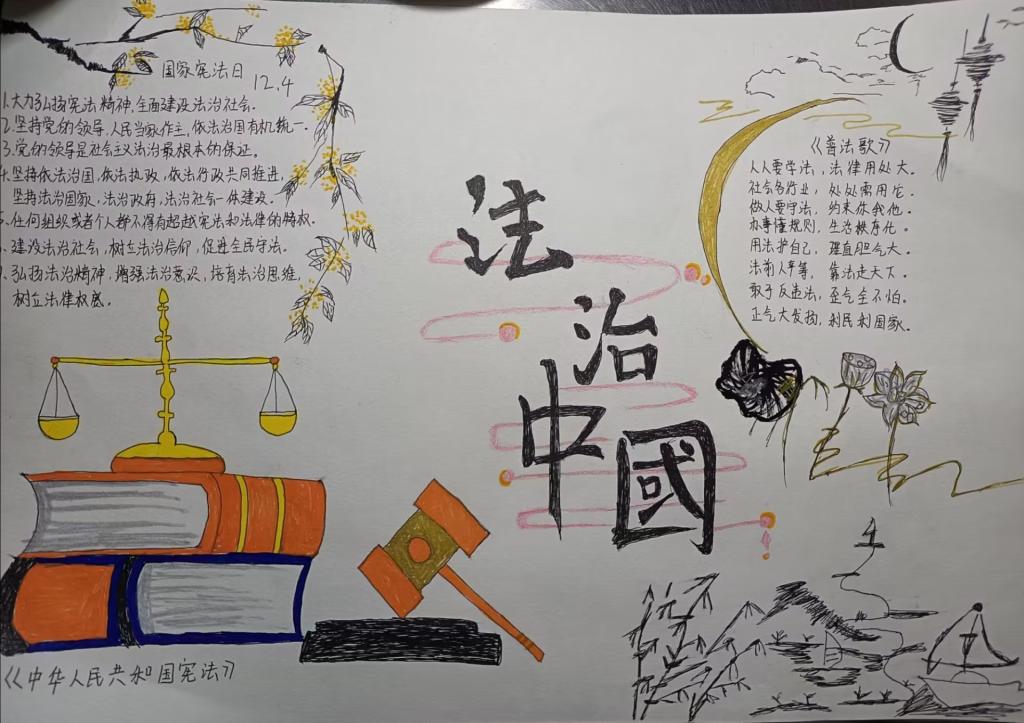 国家宪法日
12.4
1.大力弘扬宪法精神,全面建设法治社会.
2.坚持党的领导,人民当家作主,依法治国有机统一.
3.党的领导是社会主义法治最根本的保证。
4.坚持依法治国,依法执政,依法行政共同推进,
坚持法治国家,法治政府,法治社会一体建设。
任何组织或者个人都不得有超越宪法和法律的特权.
建设法治社会,树立法治信仰,促进全民守法.
弘扬法治精神,增强法治意识,培育法治思维,
树立法律权威.
法
治
中
國
《普法歌》
人人要学法,法律用处大。
社会各行业,处处需用它.
做人要守法,约束你我他。
办事懂规则,生活秩序化.
用法护自己,理直胆气大。
法前人平等,靠法走天下.
敢于反违法,歪气全不怕。
正气大发扬,利民利国家。
《中华人民共和国宪法》